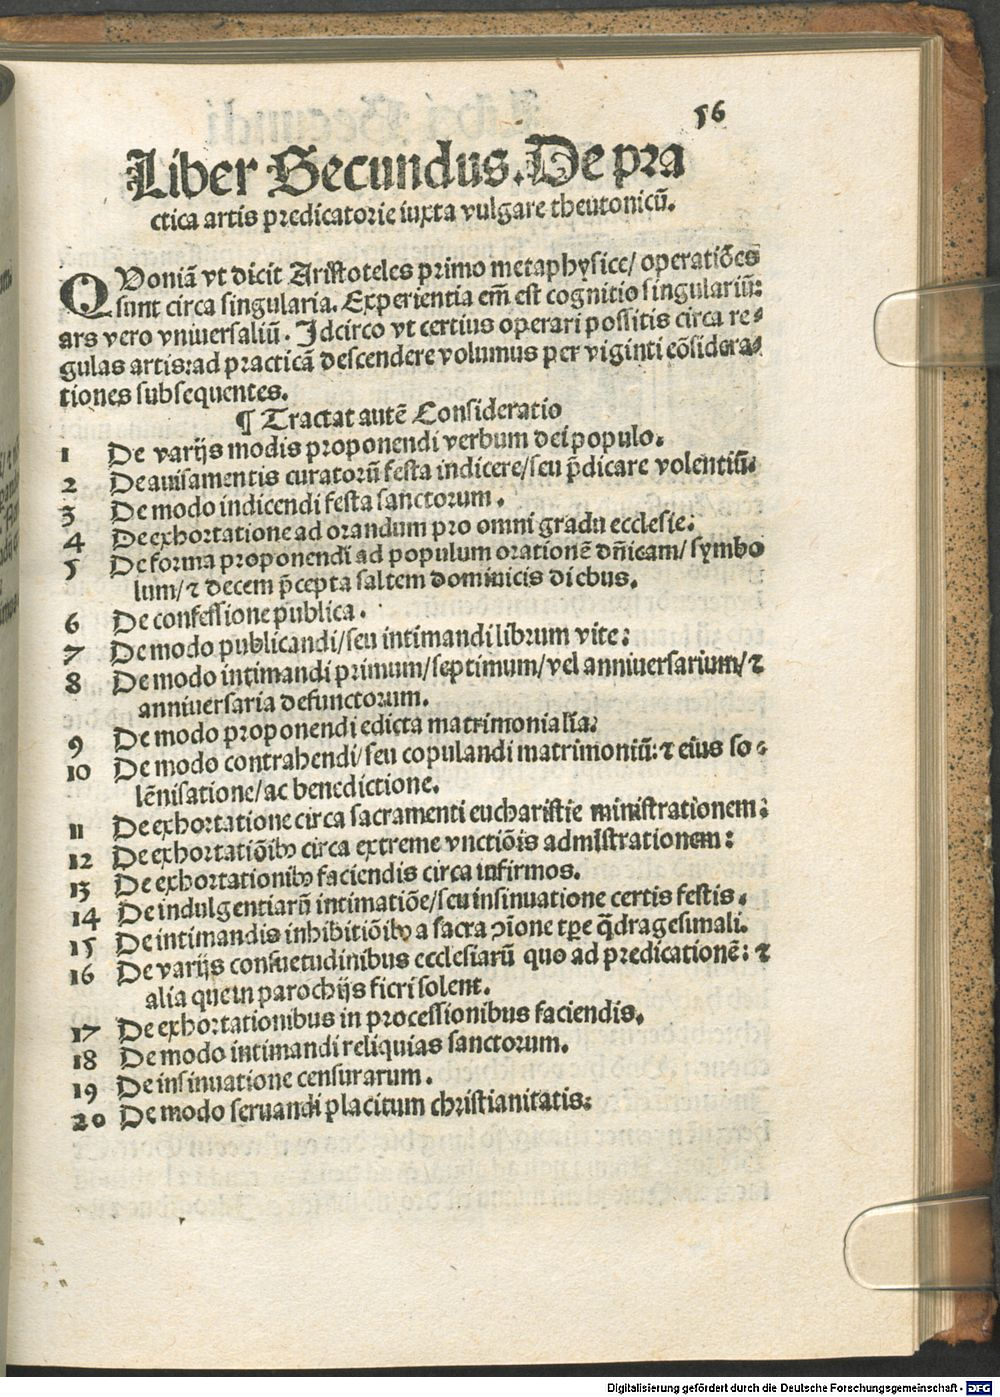 56
Liber Secundus. De pra
ctica artis predicatorie iuxta vulgare theutonicū.
QVoniā vt dicit Aristoteles primo metaphysice/ operatiões
sunt circa singularia. Experientia em̄ est cognitio singulariū:
ars vero vniuersaliū. Idcirco vt certius operari possitis circa re⸗
gulas artis:ad practicā descendere volumus per viginti cōsidera⸗
tiones subsequentes.
¶ Tractat autē Consideratio
1 De varijs modis proponendi verbum dei populo.
2 De auisamentis curatorū festa indicere/seu p̄dicare volentiū.
3 De modo indicendi festa sanctorum.
4 De exhortatione ad orandum pro omni gradu ecclesie.
5 De forma proponendi ad populum orationē dn̄icam/ symbo
lum/⁊ decem p̄cepta saltem dominicis diebus.
6 De confessione publica.
7 De modo publicandi/seu intimandi librum vite:
8 De modo intimandi primum/septimum/vel anniuersarium/⁊
anniuersaria defunctorum.
9 De modo proponendi edicta matrimonialia:
10 De modo contrahendi/seu copulandi matrimoniū:⁊ eius so⸗
lēnisatione/ac benedictione.
11 De exhortatione circa sacramenti eucharistie ministrationem:
12 De exhortatiōibꝰ circa extreme vnctiōis admistrationem:
13 De exhortationibꝰ faciendis circa infirmos.
14 De indulgentiarū intimatiōe/seu insinuatione certis festis.
15 De intimandis inhibitiōibꝰ a sacra ↄ̄ione tꝑe q̄dragesimali.
16 De varijs consuetudinibus ecclesiarū quo ad predicationē: ⁊
alia que in parochijs fieri solent.
17 De exhortationibus in processionibus faciendis.
18 De modo intimandi reliquias sanctorum.
19 De insinuatione censurarum.
20 De modo seruandi placitum christianitatis:
Digitalisierung gefördert durch die Deutsche Forschungsgemeinschaft - DFG